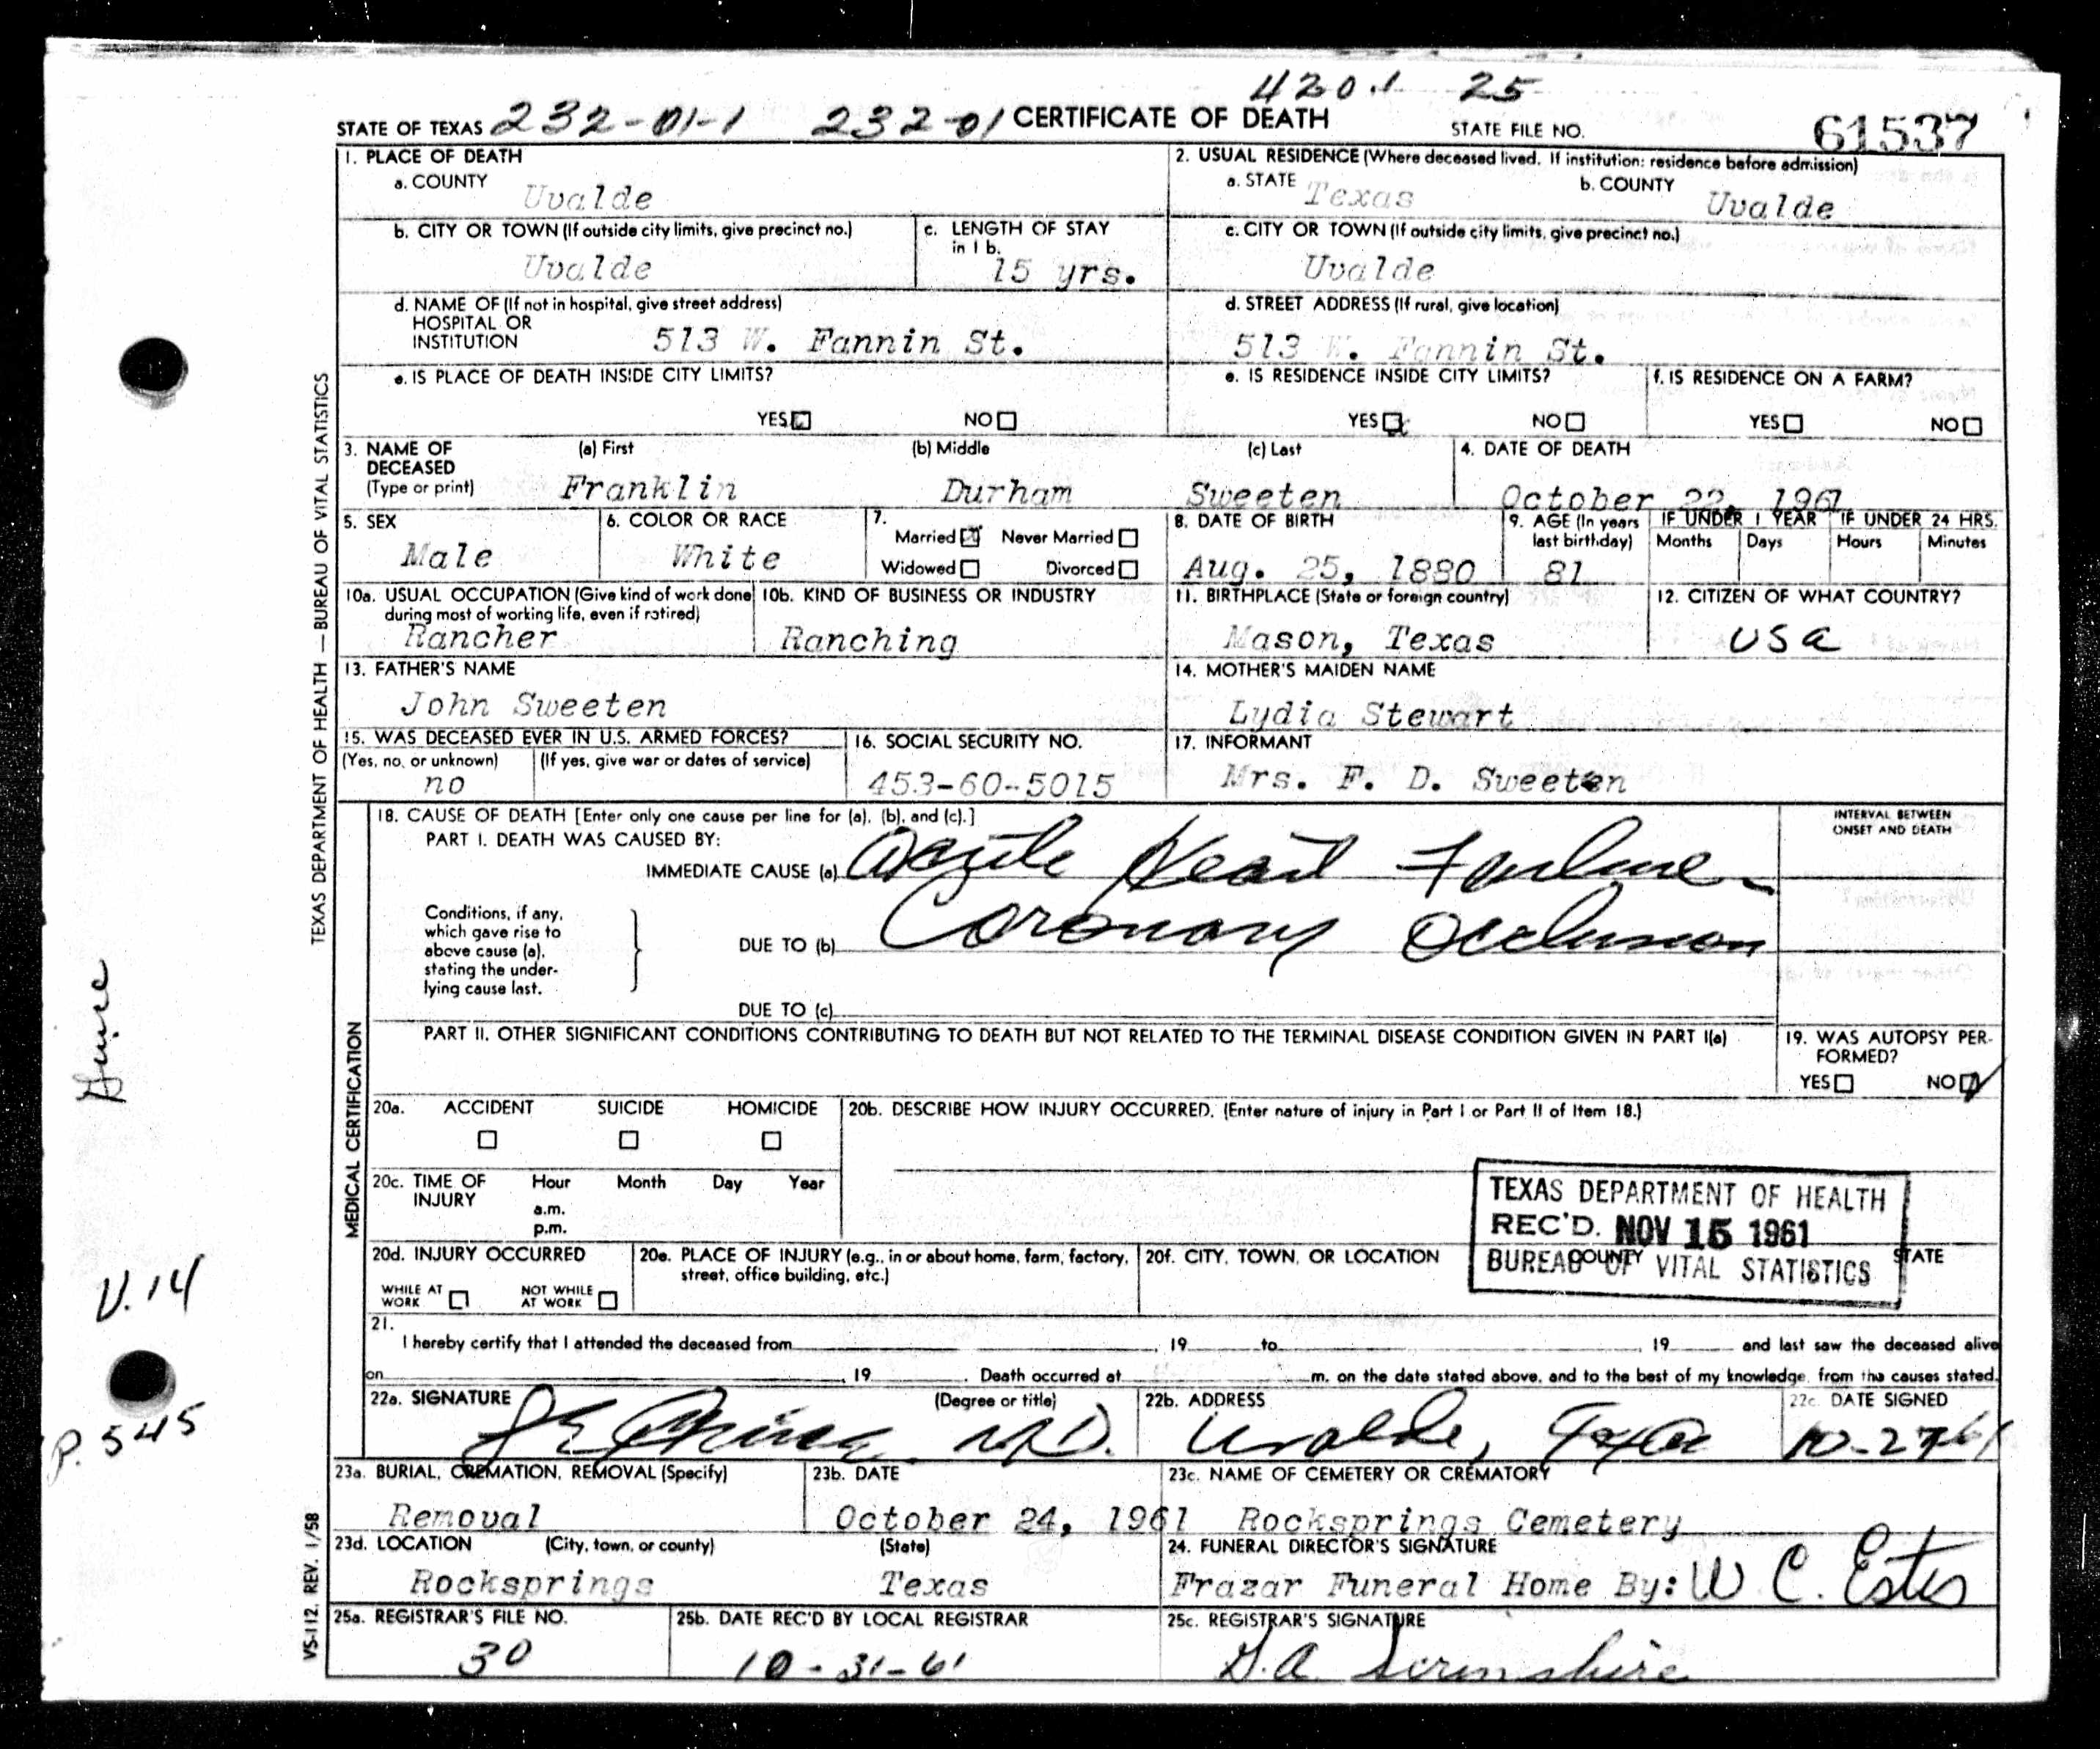 420.1 25
STATE OF TEXAS 232-01-1 232-01 CERTIFICATE OF DEATH STATE FILE NO. 61537
1. PLACE OF DEATH
a. COUNTY Uvalde
2. USUAL RESIDENCE (Where deceased lived. If institution: residence before admission)
a. STATE Texas b. COUNTY Uvalde
b. CITY OR TOWN (If outside city limits, give precinct no.) Uvalde
c. LENGTH OF STAY in 1 b. 15 yrs.
c. CITY OR TOWN (If outside city limits, give precinct no.) Uvalde
d. NAME OF (If not in hospital, give street address)
HOSPITAL OR
INSTITUTION 513 W. Fannin St.
d. STREET ADDRESS (If rural, give location)
513 W. Fannin St.
e. IS PLACE OF DEATH INSIDE CITY LIMITS?
YES NO
e. IS RESIDENCE INSIDE CITY LIMITS?
YES NO
f. IS RESIDENCE ON A FARM?
YES NO
3. NAME OF DECEASED (Type or print)
(a) First (b) Middle (c) Last
Franklin Durham Sweeten
4. DATE OF DEATH
October 22, 1961
5. SEX
Male
6. COLOR OR RACE
White
7.
Married Never Married
Widowed Divorced
8. DATE OF BIRTH
Aug. 25, 1880
9. AGE (In years last birthday)
81
IF UNDER 1 YEAR
Months Days
IF UNDER 24 HRS.
Hours Minutes
10a. USUAL OCCUPATION (Give kind of work done during most of working life, even if retired)
Rancher
10b. KIND OF BUSINESS OR INDUSTRY
Ranching
11. BIRTHPLACE (State or foreign country)
Mason, Texas
12. CITIZEN OF WHAT COUNTRY?
USA
13. FATHER'S NAME
John Sweeten
14. MOTHER'S MAIDEN NAME
Lydia Stewart
15. WAS DECEASED EVER IN U.S. ARMED FORCES?
(Yes, no, or unknown) (If yes, give war or dates of service)
no
16. SOCIAL SECURITY NO.
453-60-5015
17. INFORMANT
Mrs. F. D. Sweeten
18. CAUSE OF DEATH [Enter only one cause per line for (a), (b), and (c).]
PART I. DEATH WAS CAUSED BY:
IMMEDIATE CAUSE (a) Acute Heart Failure
INTERVAL BETWEEN ONSET AND DEATH
Conditions, if any, which gave rise to above cause (a), stating the underlying cause last.
DUE TO (b) Coronary Occlusion
DUE TO (c)
PART II. OTHER SIGNIFICANT CONDITIONS CONTRIBUTING TO DEATH BUT NOT RELATED TO THE TERMINAL DISEASE CONDITION GIVEN IN PART I(a)
19. WAS AUTOPSY PERFORMED?
YES NO
20a. ACCIDENT SUICIDE HOMICIDE
20b. DESCRIBE HOW INJURY OCCURRED. (Enter nature of injury in Part I or Part II of Item 18.)
20c. TIME OF INJURY Hour Month Day Year
a.m.
p.m.
TEXAS DEPARTMENT OF HEALTH
REC'D. NOV 15 1961
BUREAU OF VITAL STATISTICS
20d. INJURY OCCURRED
WHILE AT WORK NOT WHILE AT WORK
20e. PLACE OF INJURY (e.g., in or about home, farm, factory, street, office building, etc.)
20f. CITY, TOWN, OR LOCATION COUNTY STATE
21.
I hereby certify that I attended the deceased from , 19 to , 19 and last saw the deceased alive
on , 19 . Death occurred at m. on the date stated above, and to the best of my knowledge, from the causes stated.
22a. SIGNATURE (Degree or title)
M.D.
22b. ADDRESS
Uvalde, Texas
22c. DATE SIGNED
10-27-61
23a. BURIAL, CREMATION, REMOVAL (Specify)
Removal
23b. DATE
October 24, 1961
23c. NAME OF CEMETERY OR CREMATORY
Rocksprings Cemetery
23d. LOCATION (City, town, or county) (State)
Rocksprings Texas
24. FUNERAL DIRECTOR'S SIGNATURE
Frazar Funeral Home By: W C. Estes
25a. REGISTRAR'S FILE NO.
30
25b. DATE REC'D BY LOCAL REGISTRAR
10-31-61
25c. REGISTRAR'S SIGNATURE
G.A. Scrimshire
TEXAS DEPARTMENT OF HEALTH — BUREAU OF VITAL STATISTICS
MEDICAL CERTIFICATION
VS-112. REV. 1/58
V. 14
P. 545